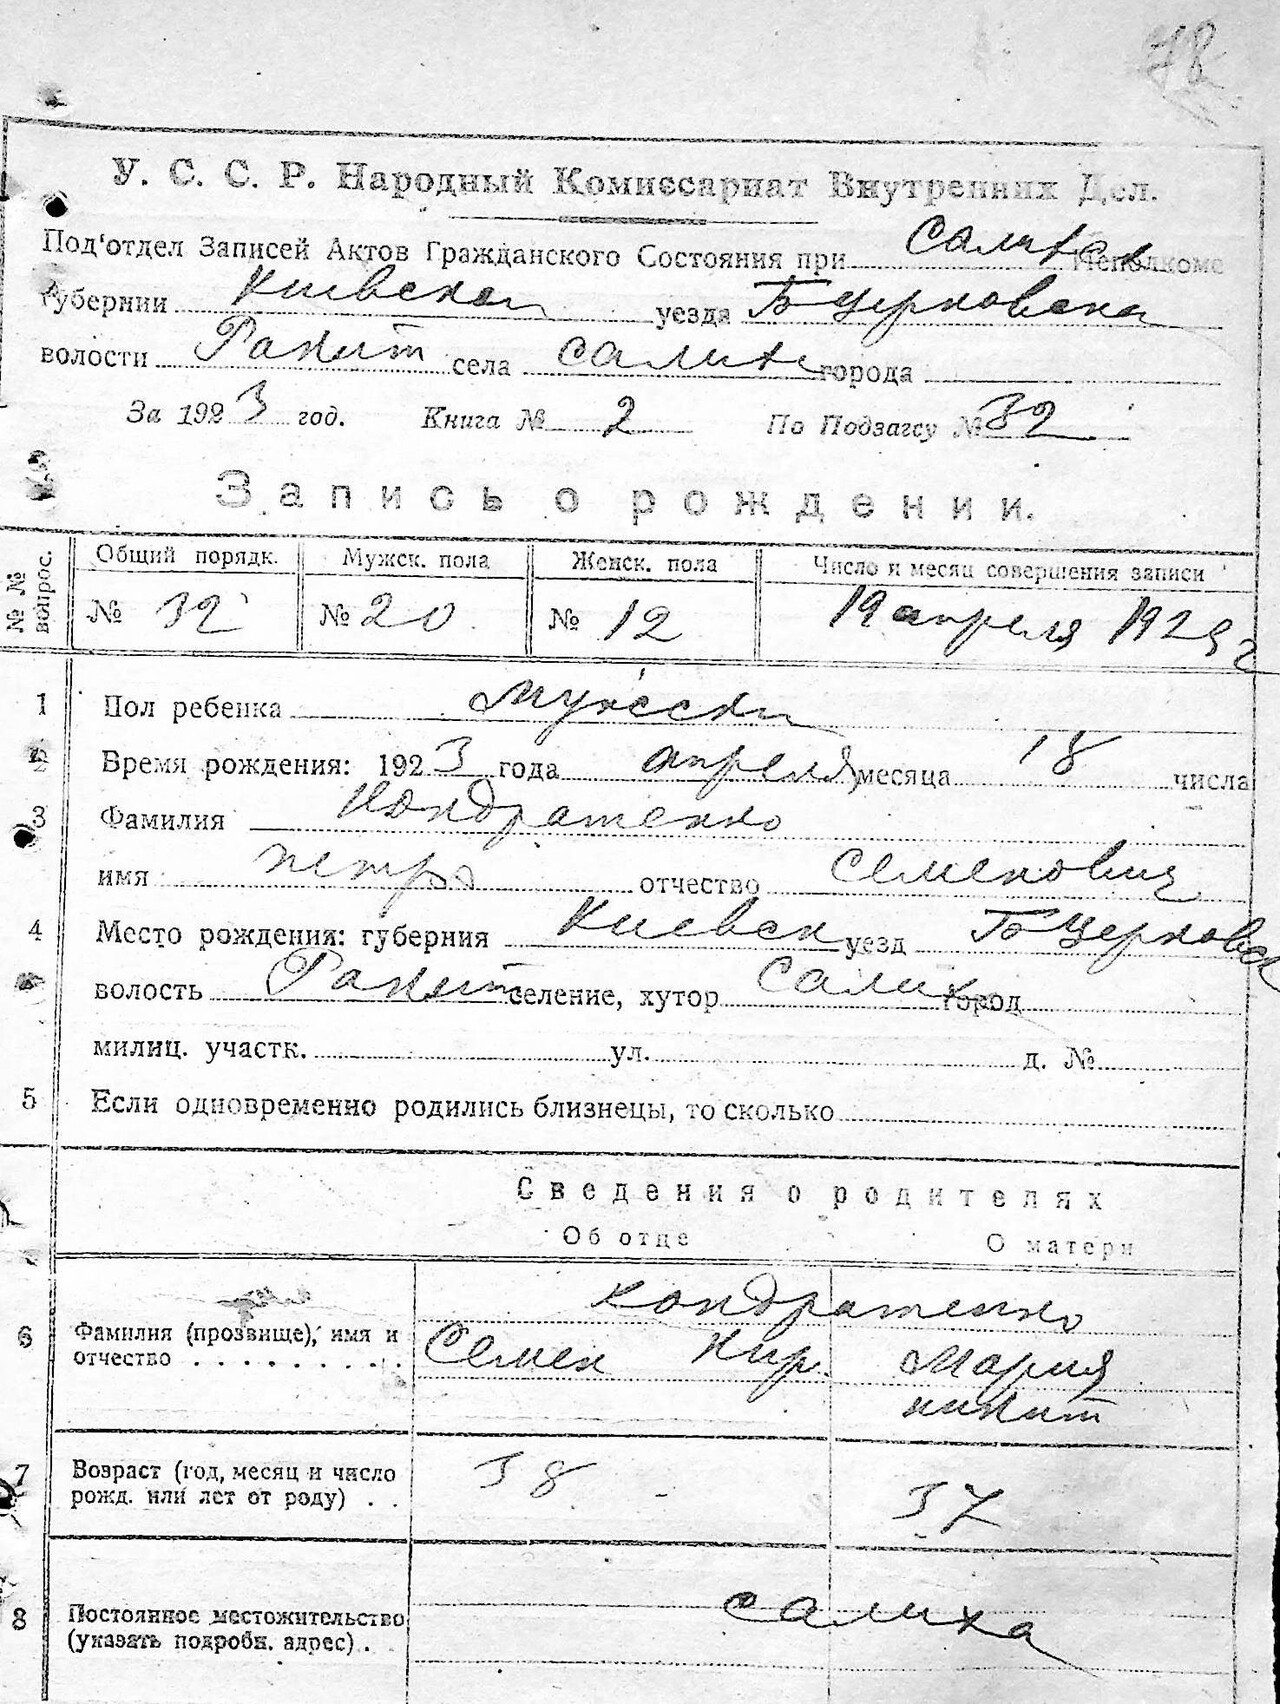 78
У. С. С. Р. Народный Комиссариат Внутренних Дел.
Под'отдел Записей Актов Гражданского Состояния при Исполкоме
губернии Киевской уезда Б Церковска
волости Ракит села Салиха города
За 1923 год. Книга № 2 По Подзагсу № 32
Запись о рождении.
№ № вопрос. Общий порядк. Мужск. пола Женск. пола Число и месяц совершения записи
№ 32 № 20 № 12 19 апреля 1923 г
1 Пол ребенка мужески
2 Время рождения: 1923 года апреля месяца 18 числа
3 Фамилия Кондратенко
имя петро отчество Семенович
4 Место рождения: губерния Киевск уезд Б Церковск
волость Ракит селение, хутор Салиха город
милиц. участк. ул. д. №
5 Если одновременно родились близнецы, то сколько
Сведения о родителях
Об отце О матери
Кондратенко
6 Фамилия (прозвище), имя и отчество Семен Кир. Мария
никит
7 Возраст (год, месяц и число рожд. или лет от роду) 38 - 37
8 Постоянное местожительство (указать подробн. адрес) Салиха